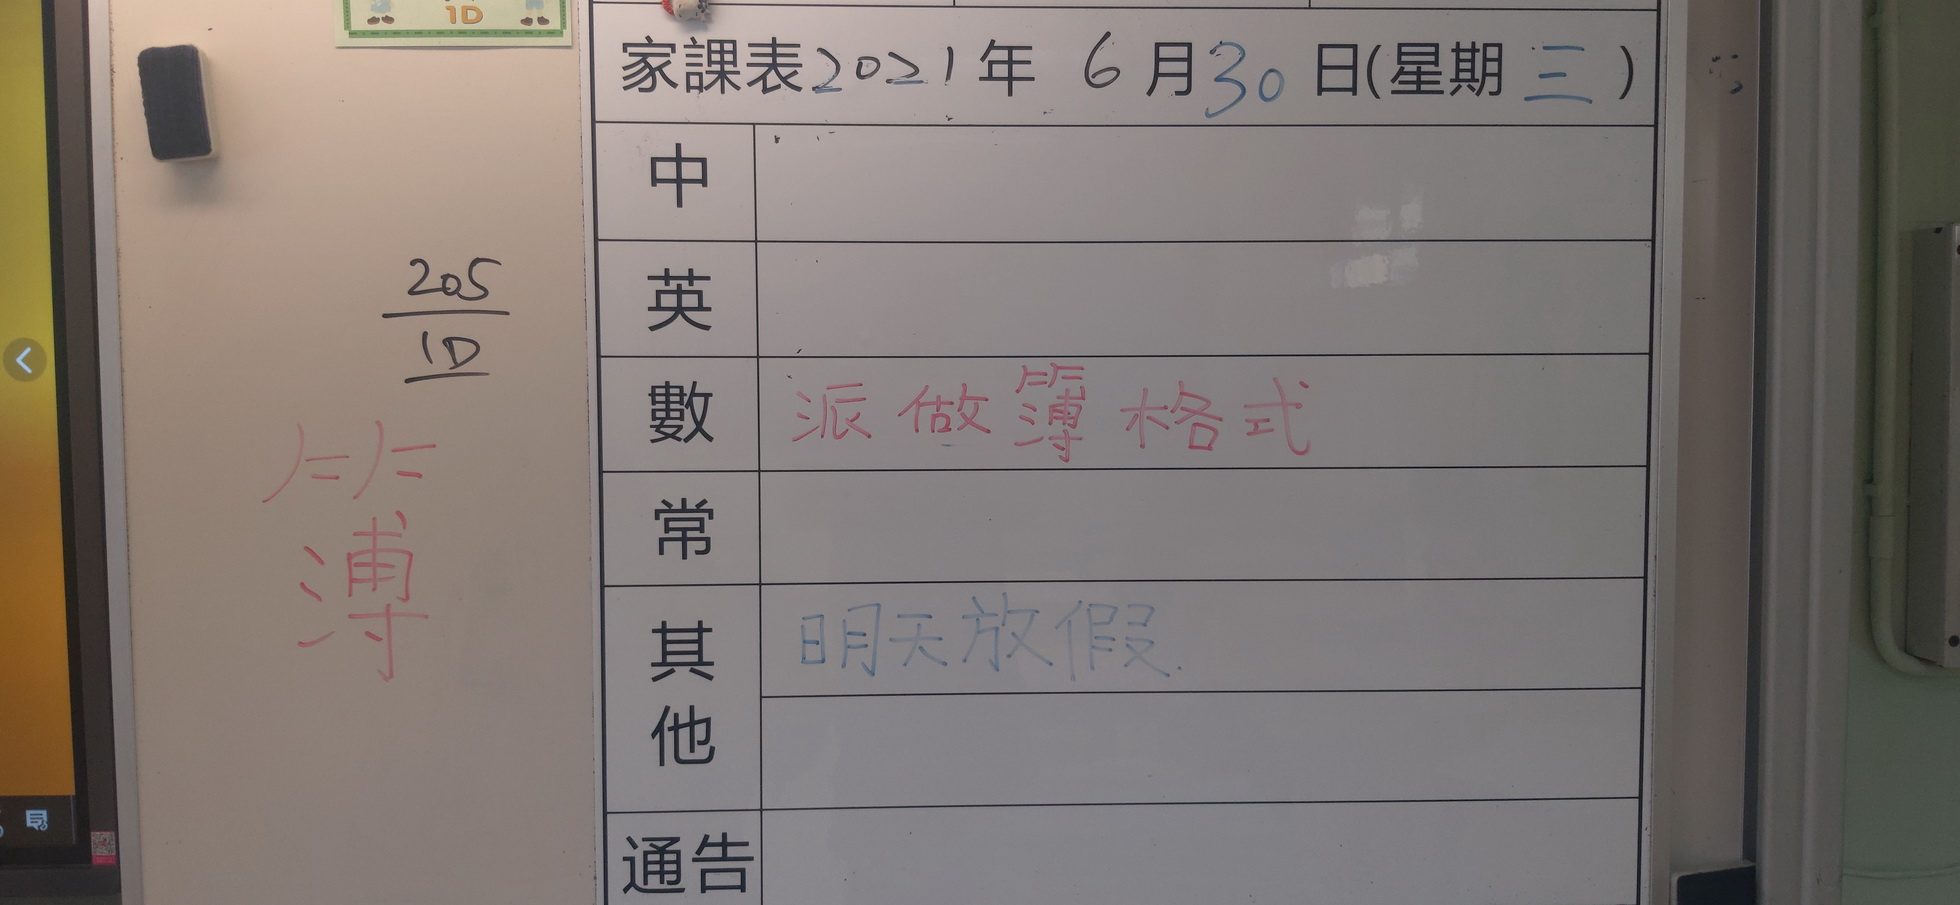 1D
家課表2021年 6月30日(星期三)
中
英
數 派做簿格式
常
其他 明天放假.
通告
205
1D
簿